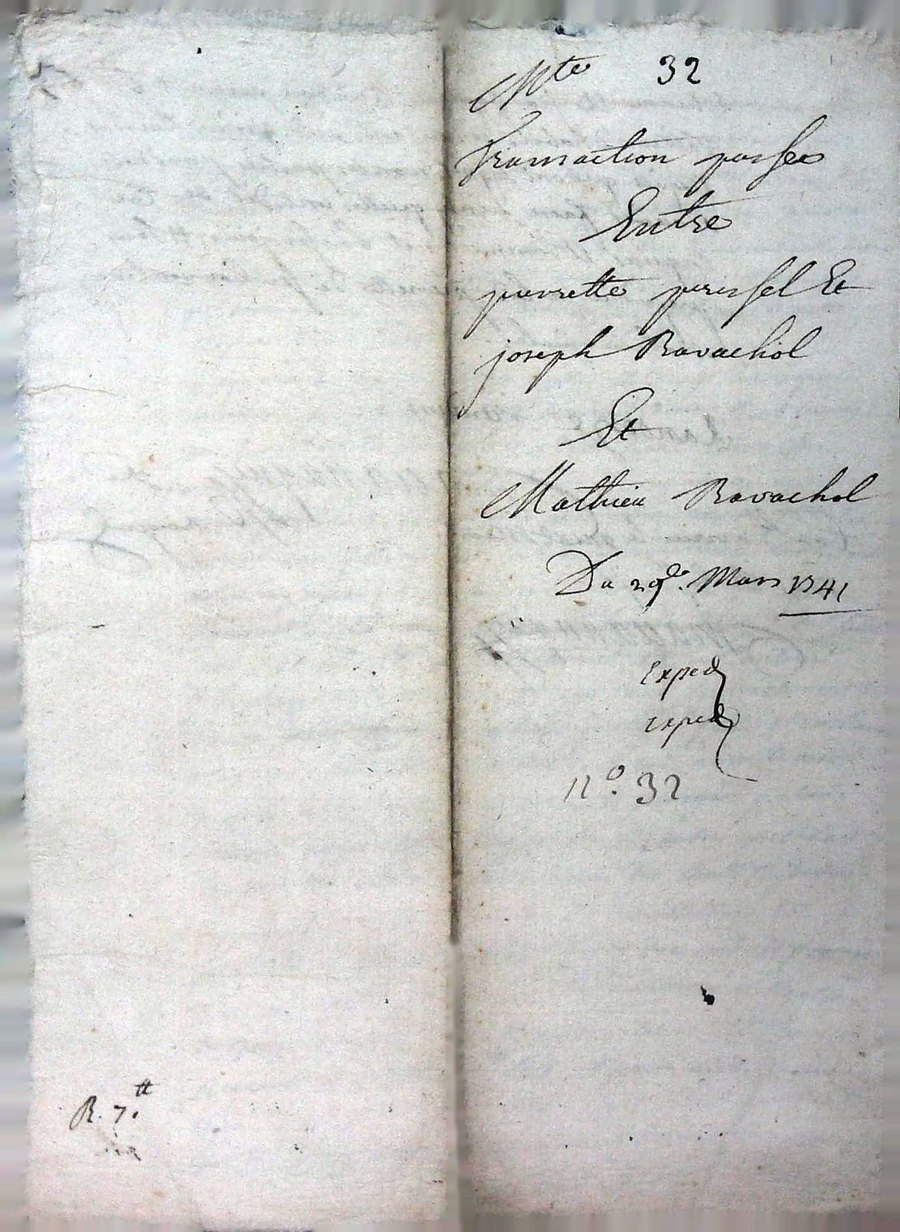 Mte 32
Transaction passée
Entre
pierrette perissel Et
joseph Ravachol
Et
Mathieu Ravachol
Du 29e. Mars 1741
exped
exped
n°. 32
R. 7.tt